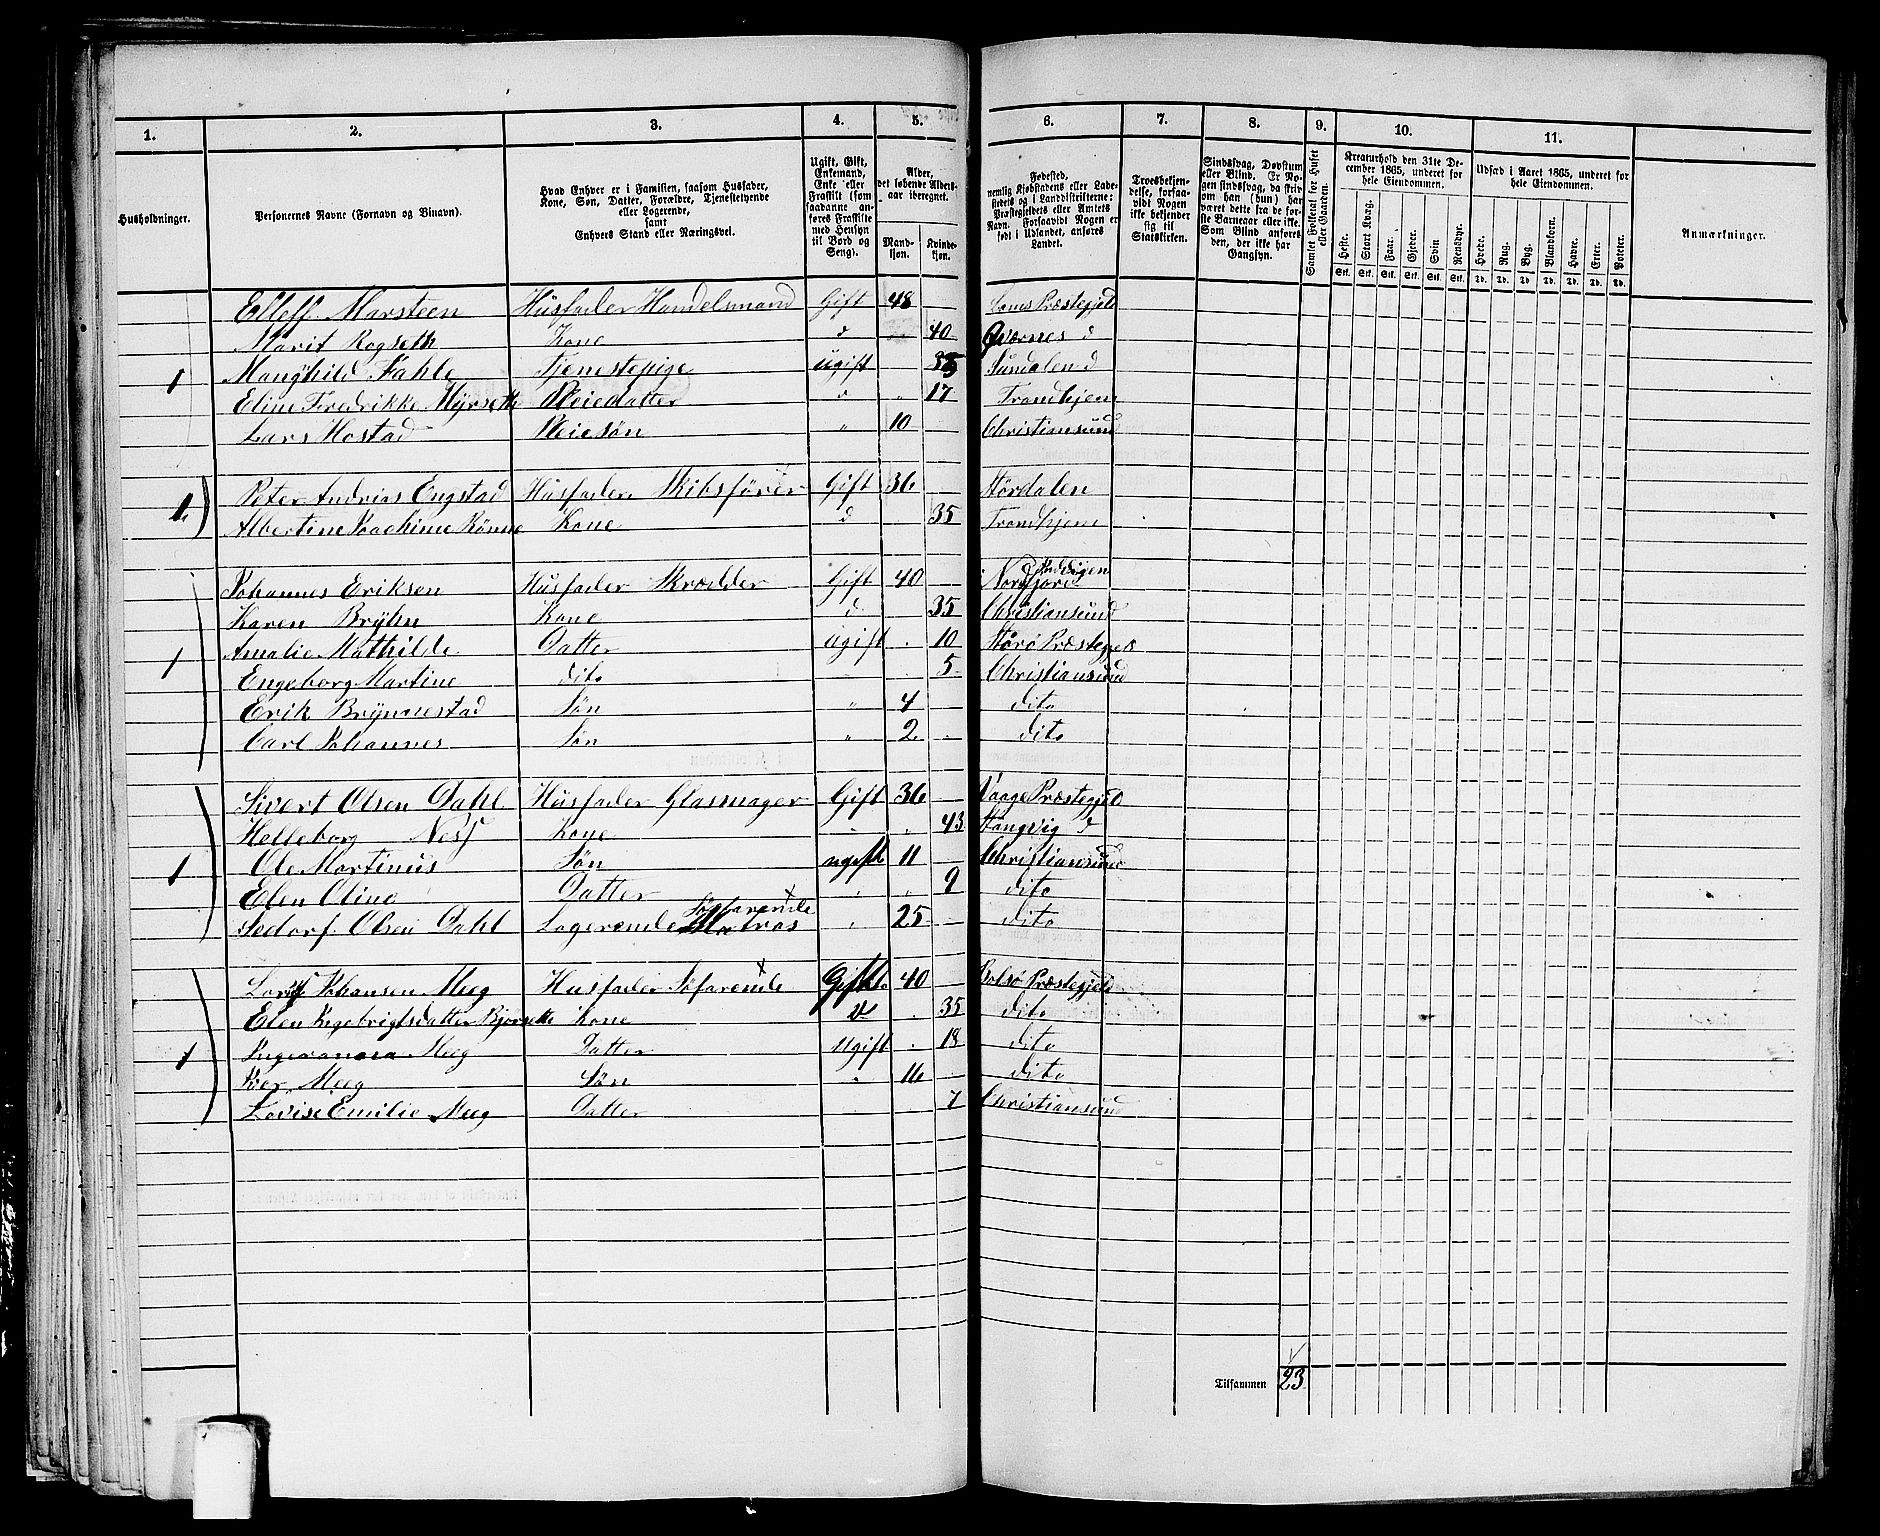 1. 2. 3. 4. 5. 6. 7. 8. 9. 10. 11.
Husholdninger.
Personernes Navne (Fornavn og Binavn).
Hvad Enhver er i Familien, saasom Husfader, Kone, Søn, Datter, Forældre, Tjenestetyende eller Logerende, samt Enhvers Stand eller Næringsvei.
Ugift, Gift, Enkemand, Enke eller Fraskilt (som saadanne anføres Fraskilte med Hensyn til Bord og Seng).
Alder, det løbende Aldersaar iberegnet.
Mandkjøn. Kvindekjøn.
Fødested, nemlig Kjøbstadens eller Ladestedets og i Landdistrikterne: Præstegjeldets eller Amtets Navn. Forsaavidt Nogen er født i Udlandet, anføres Landet.
Troesbekjendelse, forsaavidt Nogen ikke bekjender sig til Statskirken.
Sindssvag, Døvstum eller Blind. Er Nogen sindssvag, da skrives om han (hun) har været dette fra de første Barneaar eller ikke. Som Blind anføres den, der ikke har Gangsyn.
Samlet Folketal for Huset eller Gaarden.
Kreaturhold den 31te December 1865, underet for hele Eiendommen.
Heste. Stort Kvæg. Faar. Gjeder. Svin Rensdyr.
Udsæd i Aaret 1865, underet for hele Eiendommen.
Hvede. Rug. Byg. Blandkorn. Havre. Erter. Poteter.
Anmærkninger.
Elleff Marsteen Husfader Handelsmand Gift 48 Præstegjeld
Marit Rogseth Kone d 40 Qværnes d
1 Manghild Fahle Tjenestepige ugift 35 Sundalen d
Eline Fredrikke Myrseth Pleiedatter 17 Trondhjem
Lars Hostad Pleiesøn " 10 Christiansund
1. Peter Andrias Engstad Husfader Skibsfører Gift 36 Størdalen
Albertine Joachime Rönne Kone d 35 Trondhjem
Johannes Eriksen Husfader Skrædder Gift 40 Nordfjord
Karen Brÿhn Kone d 35 Christiansund
1 Amalie Mathilde Datter Ugift 10 Størø Præstegjeld
Engeborg Martine dito 5 Christiansund
Erik Brÿnnestad Søn " 4 dito
Carl Johannes Søn " 2 dito
Sivert Olsen Dahl Husfader Glasmager Gift 36 Vaage Præstegjeld
Holleborg Ness Kone 43 Stangvig d
1 Ole Martinus Søn ugift 11 Christiansund
Elen Oline Datter 9 dito
Sedorf Olsen Dahl Logerende Matros Søfarende 25 dito
Johansen Meeg Husfader Søfarende Gift 40 Bolsø Præstegjeld
Elen Ingebrigtsdatter Bjørseth Kone d 35 dito
1 Ingeranna Meeg Datter Ugift 18 dito
Iver Meeg Søn 16 dito
Lovise Emilie Meeg Datter 7 Christiansund
Tilsammen 23